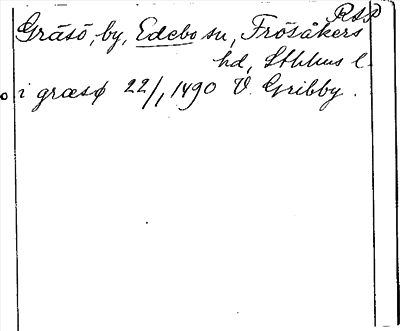 RAP
Gräsö, by, Edebo sn, Frösåkers
hd, Sthlms l.
i græsø 22/1 1490 V. Gribby.